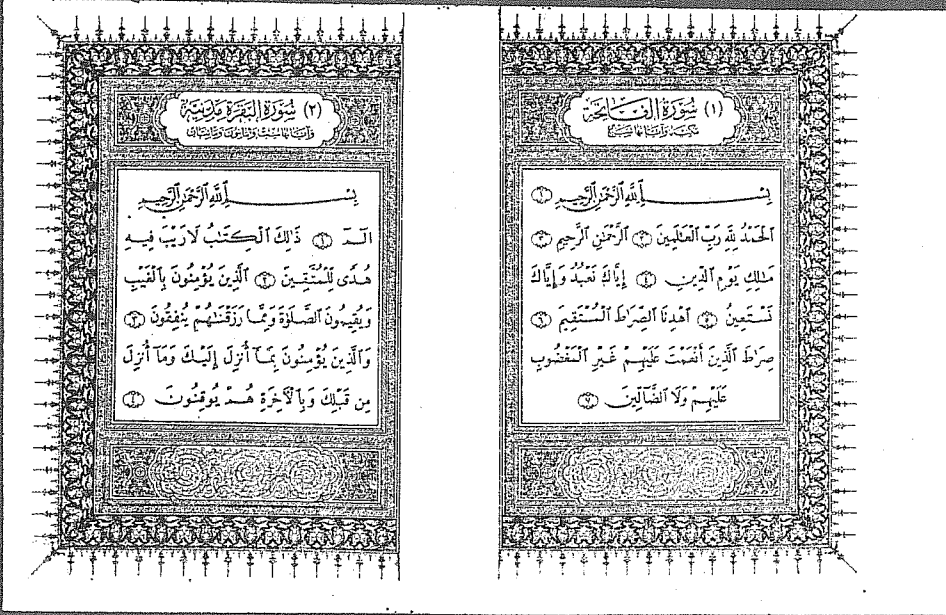 (١) سُورَةُ الفَاتِحَة
مكيّة وآياتها سبع
بِسْمِ ٱللَّهِ ٱلرَّحْمَٰنِ ٱلرَّحِيمِ ١
ٱلْحَمْدُ لِلَّهِ رَبِّ ٱلْعَٰلَمِينَ ٢ ٱلرَّحْمَٰنِ ٱلرَّحِيمِ ٣
مَٰلِكِ يَوْمِ ٱلدِّينِ ٤ إِيَّاكَ نَعْبُدُ وَإِيَّاكَ
نَسْتَعِينُ ٥ ٱهْدِنَا ٱلصِّرَٰطَ ٱلْمُسْتَقِيمَ ٦
صِرَٰطَ ٱلَّذِينَ أَنْعَمْتَ عَلَيْهِمْ غَيْرِ ٱلْمَغْضُوبِ
عَلَيْهِمْ وَلَا ٱلضَّآلِّينَ ٧
(٢) سُورَةُ البَقَرَةِ مَدَنِيَّة
وآياتها ست وثمانون ومائتان
بِسْمِ ٱللَّهِ ٱلرَّحْمَٰنِ ٱلرَّحِيمِ
الٓمٓ ١ ذَٰلِكَ ٱلْكِتَٰبُ لَا رَيْبَ فِيهِ
هُدًى لِّلْمُتَّقِينَ ٢ ٱلَّذِينَ يُؤْمِنُونَ بِٱلْغَيْبِ
وَيُقِيمُونَ ٱلصَّلَوٰةَ وَمِمَّا رَزَقْنَٰهُمْ يُنفِقُونَ ٣
وَٱلَّذِينَ يُؤْمِنُونَ بِمَآ أُنزِلَ إِلَيْكَ وَمَآ أُنزِلَ
مِن قَبْلِكَ وَبِٱلْءَاخِرَةِ هُمْ يُوقِنُونَ ٤